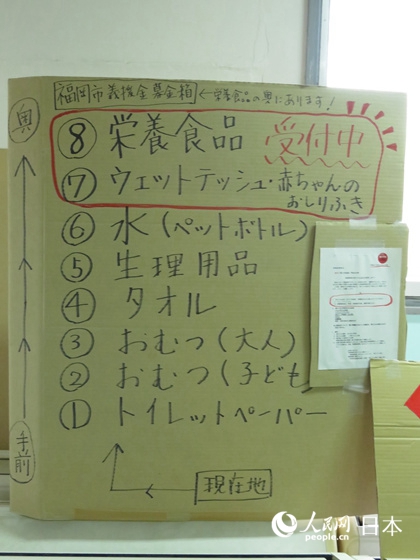 福岡市義援金募金箱 ←栄養食品の奥にあります!
奥
⑧ 栄養食品 受付中
⑦ ウェットテッシュ・赤ちゃんの
おしりふき
⑥ 水(ペットボトル)
⑤ 生理用品
④ タオル
③ おむつ(大人)
② おむつ(子ども
① トイレットペーパー
手前
現在地
人民网 日本
people.cn